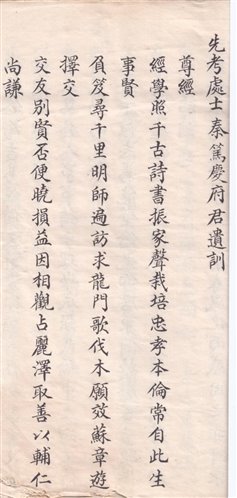 先考處士 秦篤慶府君遺訓
尊經
經學照千古詩書振家聲栽培忠孝本倫常自此生
事賢
負笈尋千里明師遍訪求龍門歌伐木願效蘇章遊
擇交
交友別賢否便曉損益因相觀占麗澤取善以輔仁
尚謙